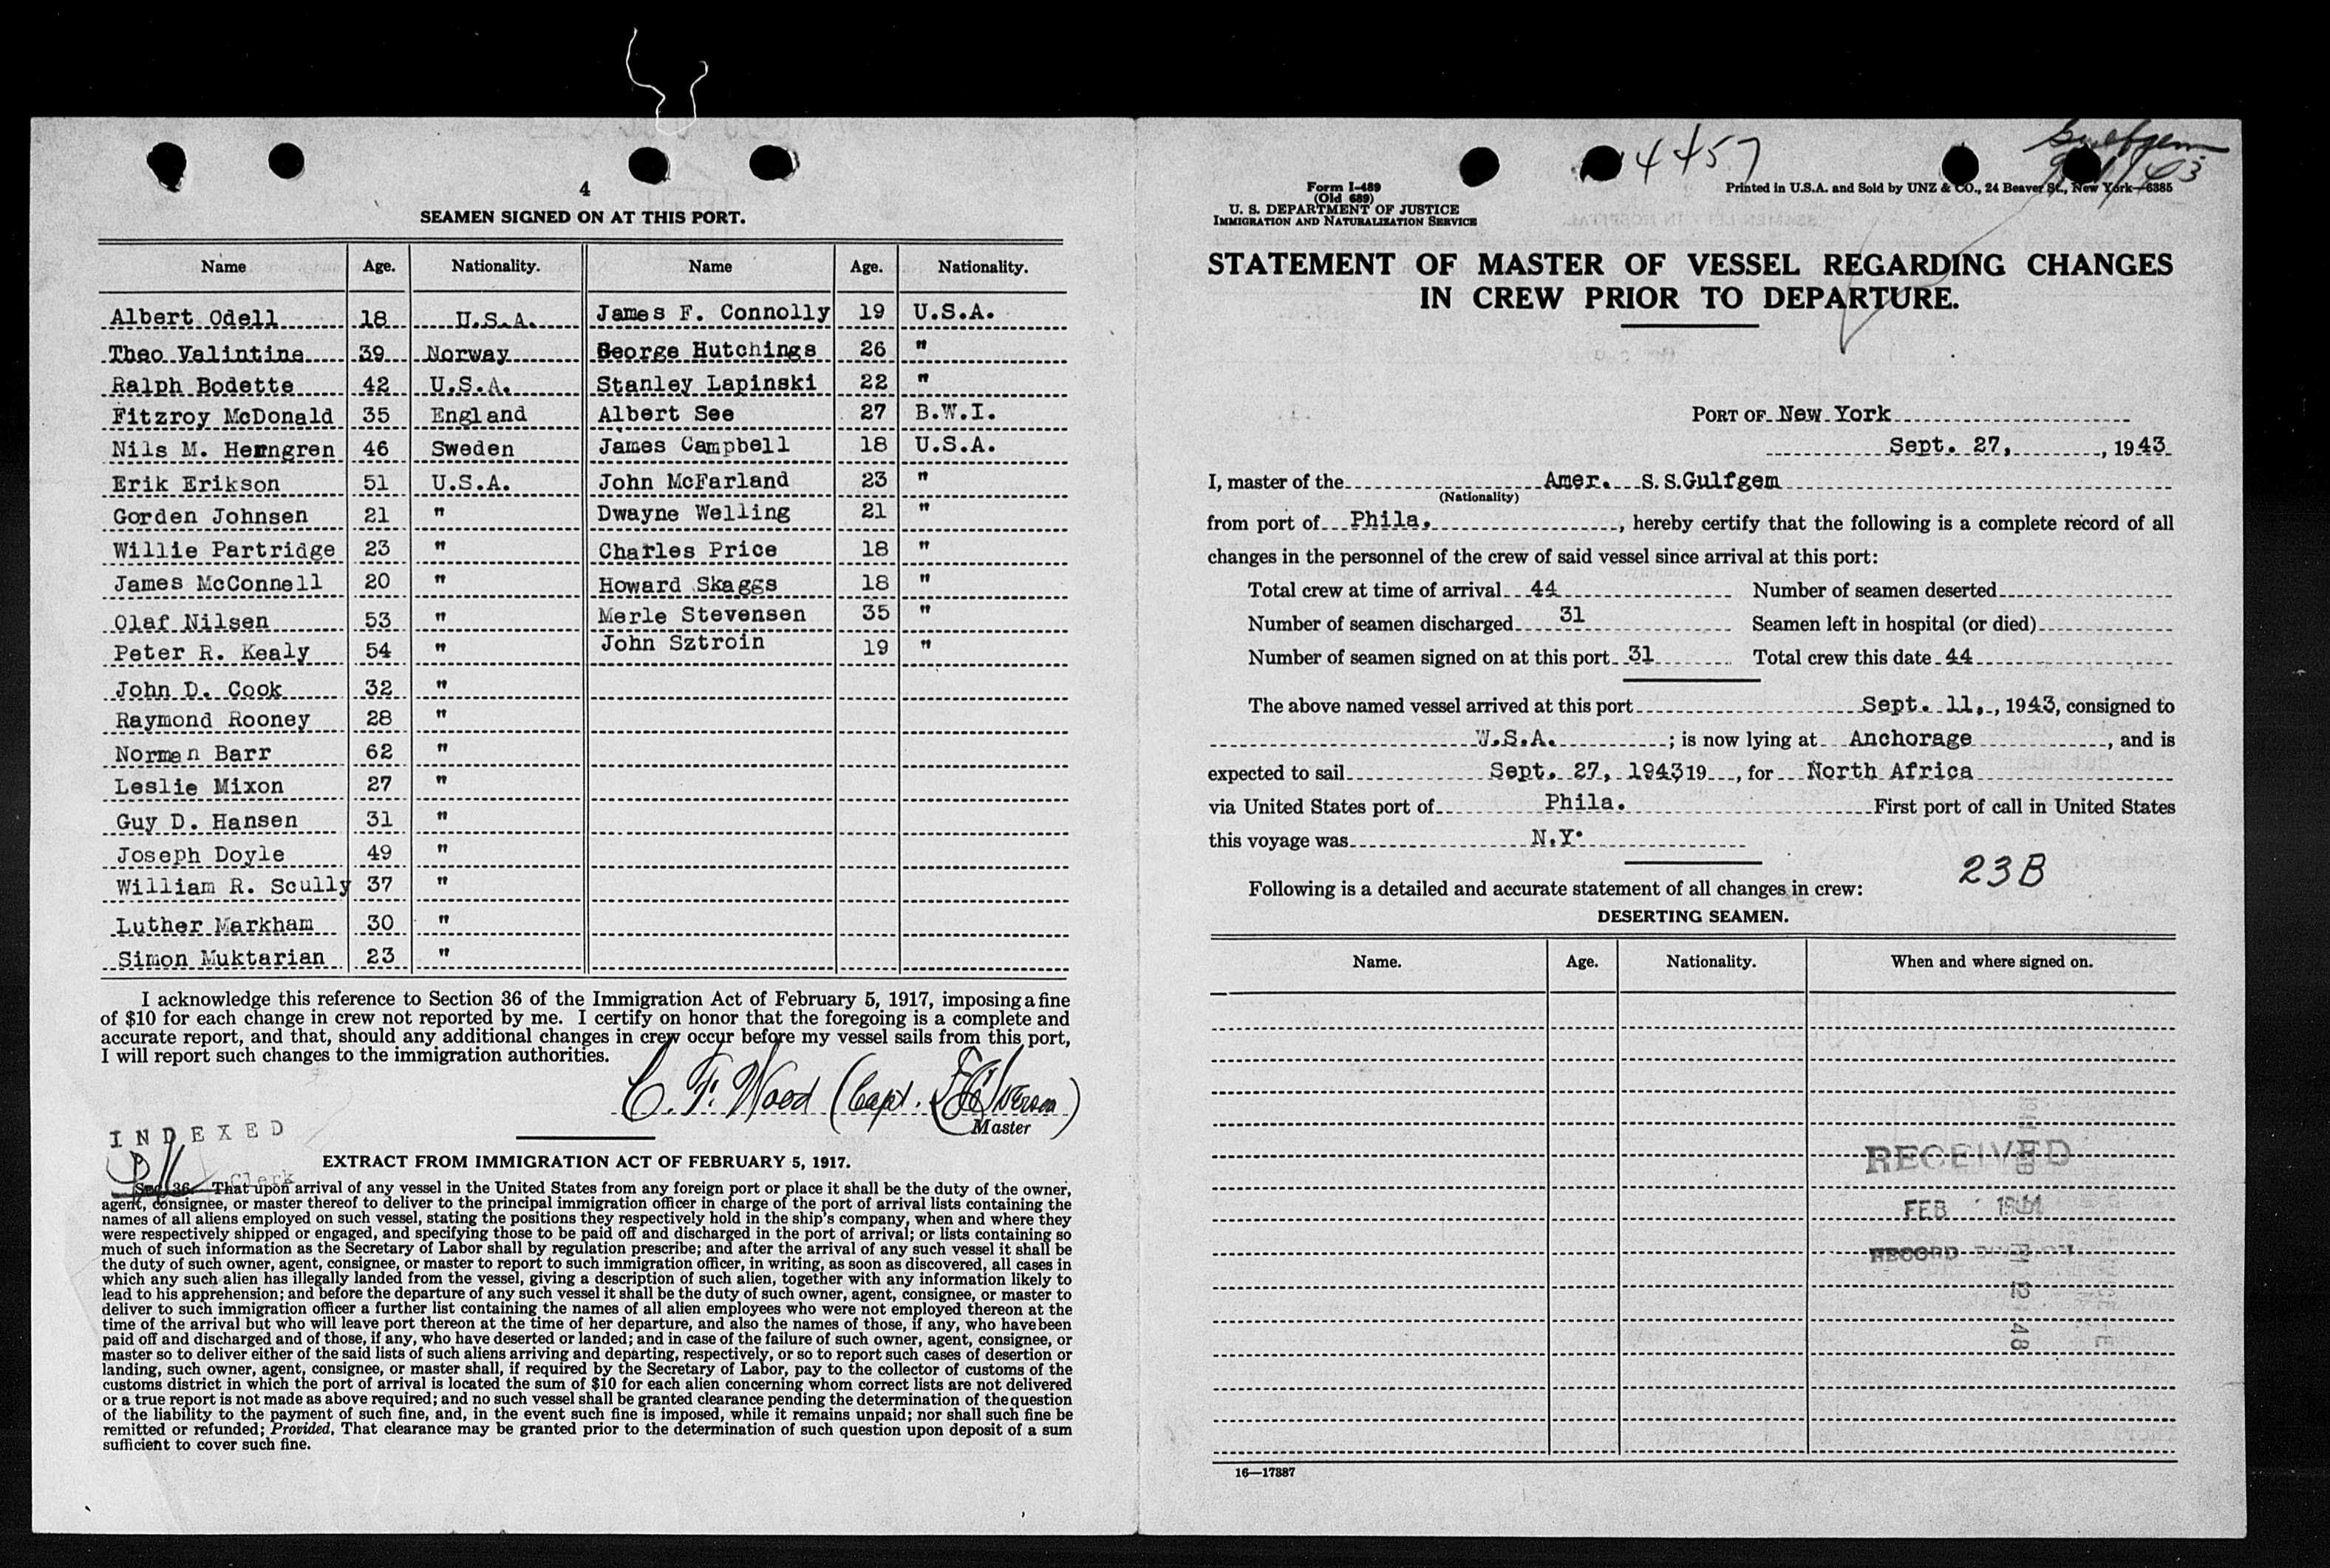 4
SEAMEN SIGNED ON AT THIS PORT.
Name Age. Nationality. Name Age. Nationality.
Albert Odell 18 U.S.A. James F. Connolly 19 U.S.A.
Theo Valintine 39 Norway George Hutchings 26 "
Ralph Bodette 42 U.S.A. Stanley Lapinski 22 "
Fitzroy McDonald 35 England Albert See 27 B.W.I.
Nils M. Herngren 46 Sweden James Campbell 18 U.S.A.
Erik Erikson 51 U.S.A. John McFarland 23 "
Gorden Johnsen 21 " Dwayne Welling 21 "
Willie Partridge 23 " Charles Price 18 "
James McConnell 20 " Howard Skaggs 18 "
Olaf Nilsen 53 " Merle Stevensen 35 "
Peter R. Kealy 54 " John Sztroin 19 "
John D. Cook 32 "
Raymond Rooney 28 "
Norman Barr 62 "
Leslie Mixon 27 "
Guy D. Hansen 31 "
Joseph Doyle 49 "
William R. Scully 37 "
Luther Markham 30 "
Simon Muktarian 23 "
I acknowledge this reference to Section 36 of the Immigration Act of February 5, 1917, imposing a fine
of $10 for each change in crew not reported by me. I certify on honor that the foregoing is a complete and
accurate report, and that, should any additional changes in crew occur before my vessel sails from this port,
I will report such changes to the immigration authorities.
C. F. Wood (Capt.
Master
INDEXED
Clerk
EXTRACT FROM IMMIGRATION ACT OF FEBRUARY 5, 1917.
Sec. 36. That upon arrival of any vessel in the United States from any foreign port or place it shall be the duty of the owner,
agent, consignee, or master thereof to deliver to the principal immigration officer in charge of the port of arrival lists containing the
names of all aliens employed on such vessel, stating the positions they respectively hold in the ship's company, when and where they
were respectively shipped or engaged, and specifying those to be paid off and discharged in the port of arrival; or lists containing so
much of such information as the Secretary of Labor shall by regulation prescribe; and after the arrival of any such vessel it shall be
the duty of such owner, agent, consignee, or master to report to such immigration officer, in writing, as soon as discovered, all cases in
which any such alien has illegally landed from the vessel, giving a description of such alien, together with any information likely to
lead to his apprehension; and before the departure of any such vessel it shall be the duty of such owner, agent, consignee, or master to
deliver to such immigration officer a further list containing the names of all alien employees who were not employed thereon at the
time of the arrival but who will leave port thereon at the time of her departure, and also the names of those, if any, who have been
paid off and discharged and of those, if any, who have deserted or landed; and in case of the failure of such owner, agent, consignee, or
master so to deliver either of the said lists of such aliens arriving and departing, respectively, or so to report such cases of desertion or
landing, such owner, agent, consignee, or master shall, if required by the Secretary of Labor, pay to the collector of customs of the
customs district in which the port of arrival is located the sum of $10 for each alien concerning whom correct lists are not delivered
or a true report is not made as above required; and no such vessel shall be granted clearance pending the determination of the question
of the liability to the payment of such fine, and, in the event such fine is imposed, while it remains unpaid; nor shall such fine be
remitted or refunded; Provided, That clearance may be granted prior to the determination of such question upon deposit of a sum
sufficient to cover such fine.
4457
Gulfgem
Form I-489
(Old 689)
U. S. DEPARTMENT OF JUSTICE
IMMIGRATION AND NATURALIZATION SERVICE
Printed in U.S.A. and Sold by UNZ & CO., 24 Beaver St., New York—6385
STATEMENT OF MASTER OF VESSEL REGARDING CHANGES
IN CREW PRIOR TO DEPARTURE.
PORT OF New York
Sept. 27, , 1943
I, master of the Amer. S.S.Gulfgem
(Nationality)
from port of Phila. , hereby certify that the following is a complete record of all
changes in the personnel of the crew of said vessel since arrival at this port:
Total crew at time of arrival 44 Number of seamen deserted
Number of seamen discharged 31 Seamen left in hospital (or died)
Number of seamen signed on at this port 31 Total crew this date 44
The above named vessel arrived at this port Sept. 11, , 1943, consigned to
W.S.A. ; is now lying at Anchorage , and is
expected to sail Sept. 27, 1943 19 , for North Africa
via United States port of Phila. First port of call in United States
this voyage was N.Y.
23B
Following is a detailed and accurate statement of all changes in crew:
DESERTING SEAMEN.
Name. Age. Nationality. When and where signed on.
RECEIVED
FEB 1944
RECORD
16—17387